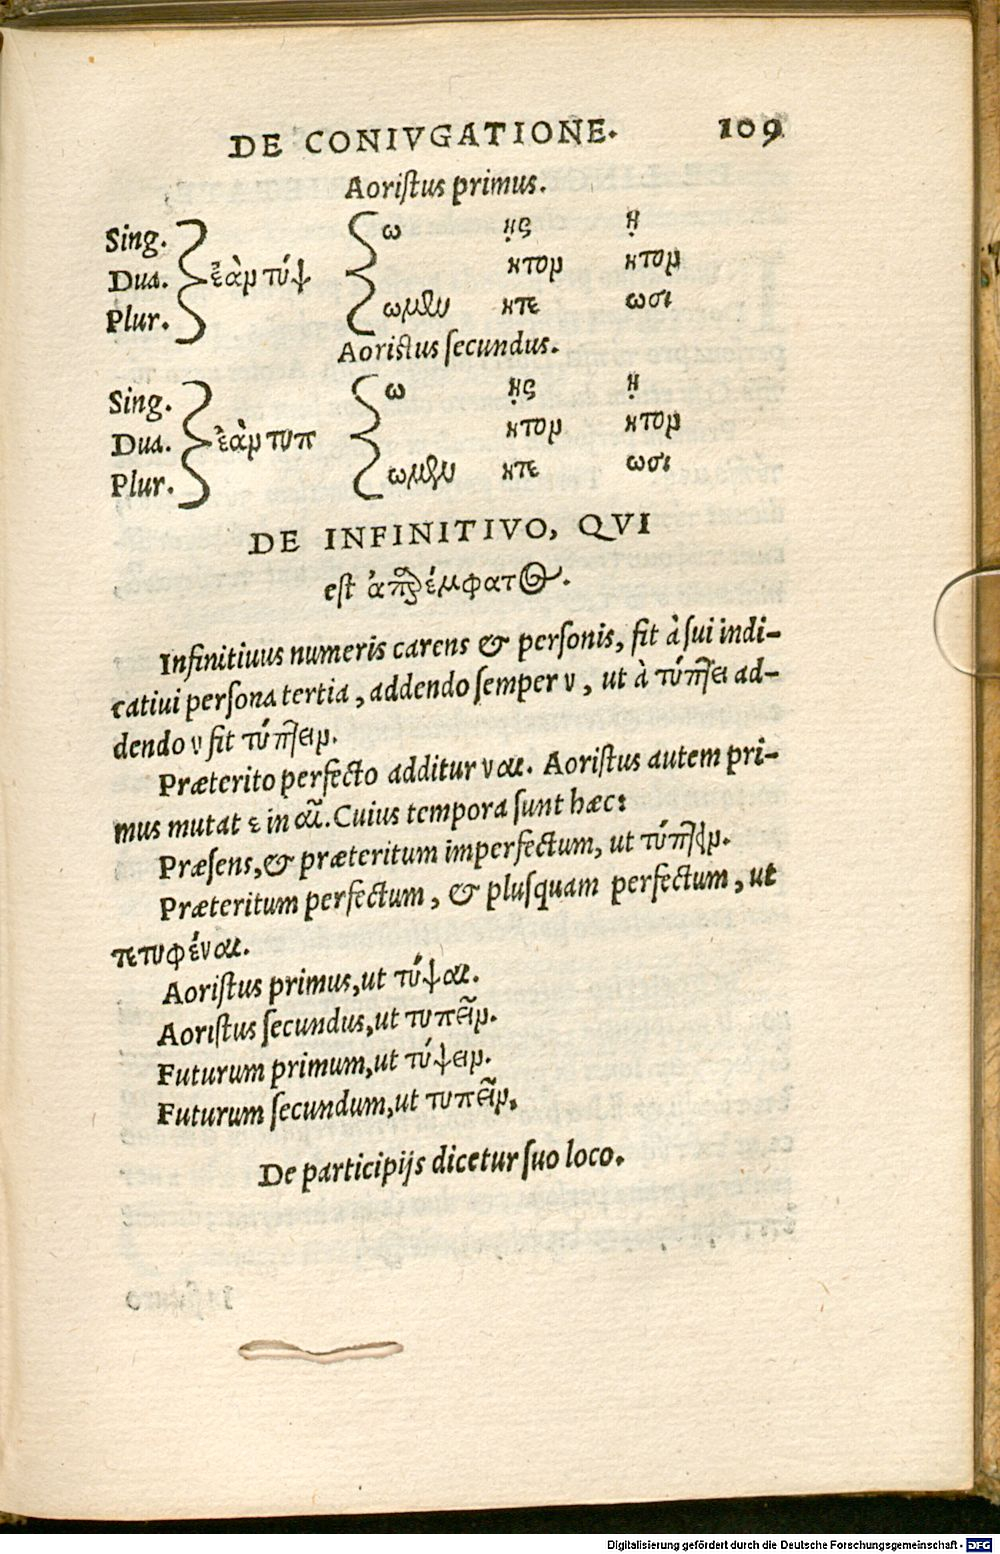 DE CONIVGATIONE. 109
Aoristus primus.
Sing. ω ῃς ῃ
Dua. ἐὰν τύψ ητον ητον
Plur. ωμεν ητε ωσι
Aoristus secundus.
Sing. ω ῃς ῃ
Dua. ἐὰν τυπ ητον ητον
Plur. ωμεν ητε ωσι
DE INFINITIVO, QVI
est ἀπαρέμφατος.
Infinitiuus numeris carens & personis, fit à sui indi-
catiui persona tertia, addendo semper ν, ut à τύπτει ad-
dendo ν fit τύπτειν.
Præterito perfecto additur ναι. Aoristus autem pri-
mus mutat ε in αι. Cuius tempora sunt hæc:
Præsens, & præteritum imperfectum, ut τύπτειν.
Præteritum perfectum, & plusquam perfectum, ut
τετυφέναι.
Aoristus primus, ut τύψαι.
Aoristus secundus, ut τυπεῖν.
Futurum primum, ut τύψειν.
Futurum secundum, ut τυπεῖν.
De participijs dicetur suo loco.
Digitalisierung gefördert durch die Deutsche Forschungsgemeinschaft - DFG